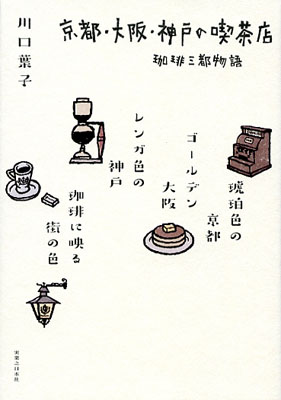 京都・大阪・神戸の喫茶店
珈琲三都物語
川口葉子
琥珀色の
京都
ゴールデン
大阪
レンガ色の
神戸
珈琲に映る
街の色
実業之日本社